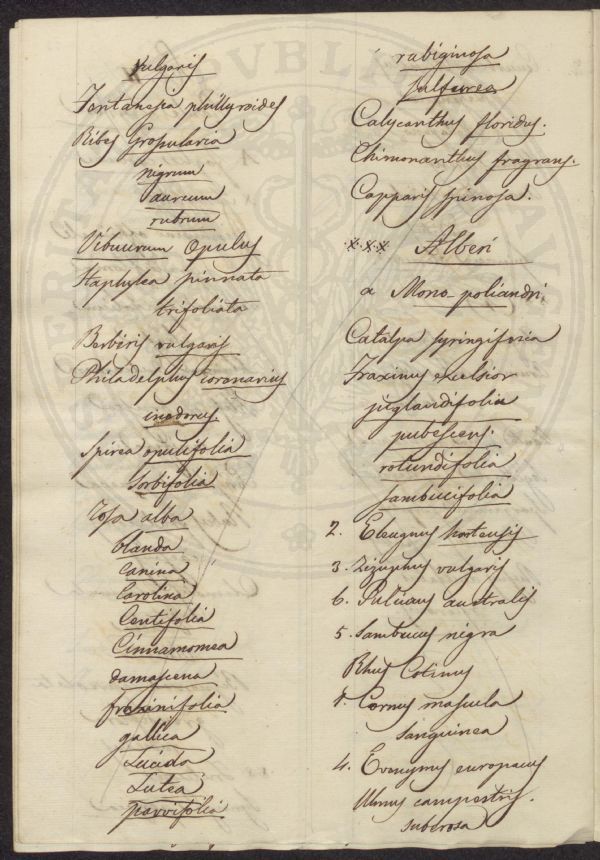 vulgaris
Fontanesia phillyroides
Ribes Grossularia
nigrum
aureum
rubrum
Viburnum Opulus
Staphylea pinnata
trifoliata
Berberis vulgaris
Philadelphus coronarius
inodorus
Spirea opulifolia
Sorbifolia
Rosa alba
blanda
canina
Carolina
Centifolia
Cinnamomea
damascena
fraxinifolia
gallica
Lucida
Lutea
parvifolia
rubiginosa
sulfurea
Calycanthus floridus.
Chimonanthus fragrans.
Capparis spinosa.
x.x.x Alberi
a Mono-poliandri.
Catalpa syringifolia
Fraxinus excelsior
juglandifolia
pubescens.
rotundifolia
sambucifolia
2. Eleagnus hortensis
3. Zizyphus vulgaris
6. australis
5. Sambucus nigra
Rhus Cotinus
1. Cornus mascula
Sanguinea
4. Evonymus europaeus
Ulmus campestris.
suberosa